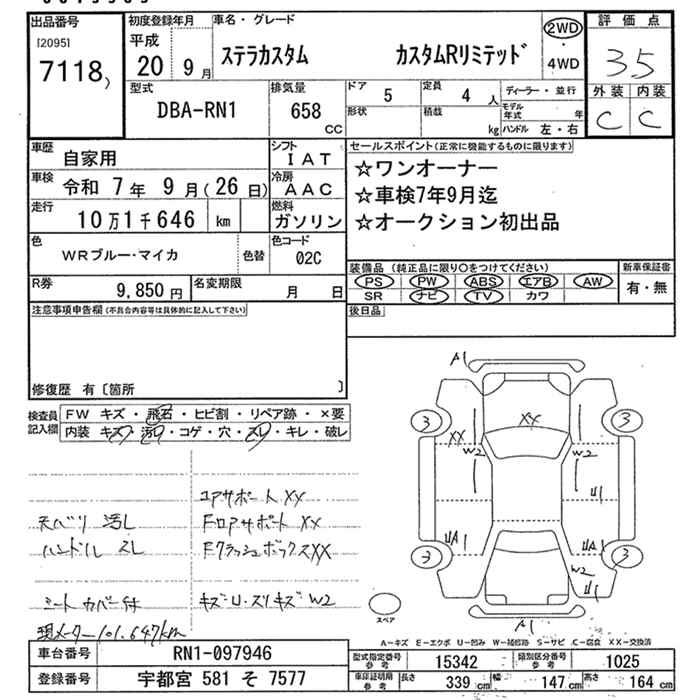 出品番号
[2095]
7118
初度登録年月
平成
20 9月
車名・グレード
ステラカスタム カスタムRリミテッド
2WD
・
4WD
評価点
3.5
外装 内装
C C
型式
DBA-RN1
排気量
658
CC
ドア 5
定員 4 人
形状
積載 kg
ディーラー・並行
モデル年式 年
ハンドル 左・右
車歴 自家用
車検 令和 7年 9月(26日)
走行 10万1千646 km
シフト IAT
冷房 AAC
燃料 ガソリン
色 WRブルー・マイカ
色替
色コード 02C
R券 9,850円
名変期限 月 日
セールスポイント(正常に機能するものに限ります)
☆ワンオーナー
☆車検7年9月迄
☆オークション初出品
装備品(純正品に限り○をつけてください)
PS PW ABS エアB AW
SR ナビ TV カワ
新車保証書
有・無
後日品
注意事項申告欄(不具合内容等は具体的に記入して下さい)
修復歴 有〔箇所 〕
検査員記入欄
FW キズ・飛石・ヒビ割・リペア跡・×要
内装 キズ・汚れ・コゲ・穴・スレ・キレ・破レ
コアサポートXX
天バリ 汚レ FロアサポートXX
ハンドル スレ FクラッシュボックスXX
シートカバー付 キズ・U・スリキズ W2
現メーター101.647km
A1
3 3
XX XX
W2 W2
U1
UA1 UA1
3 3
W2
U1
A1
スペア
A−キズ E−エクボ U−凹み W−補修跡 S−サビ C−腐食 XX−交換済
車台番号 RN1-097946
登録番号 宇都宮 581 そ 7577
型式指定番号 参考 15342
類別区分番号 参考 1025
車庫証明用 参考 長さ 339 cm 幅 147 cm 高さ 164 cm